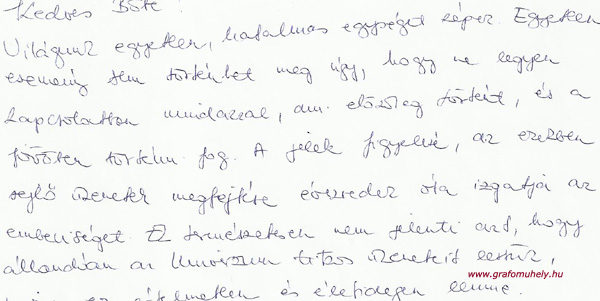 Kedves
Világunk egyetlen, hatalmas egységet képez. Egyetlen
esemény sem történhet meg úgy, hogy ne legyen
kapcsolatban mindazzal, ami előzőleg történt, és a
jövőben történni fog. A jelek figyelése, az ezekben
rejlő üzenetek megfejtése évezredek óta izgatja az
emberiséget. Ez természetesen nem jelenti azt, hogy
állandóan az Univerzum titkos üzeneteit lessük,
www.grafomuhely.hu
és életidegen lenne.